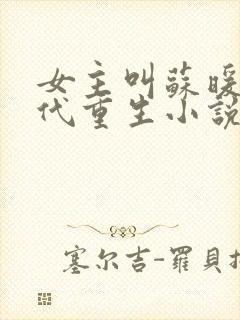 女主叫蘇暖
代重生小説
塞尔吉-羅貝托